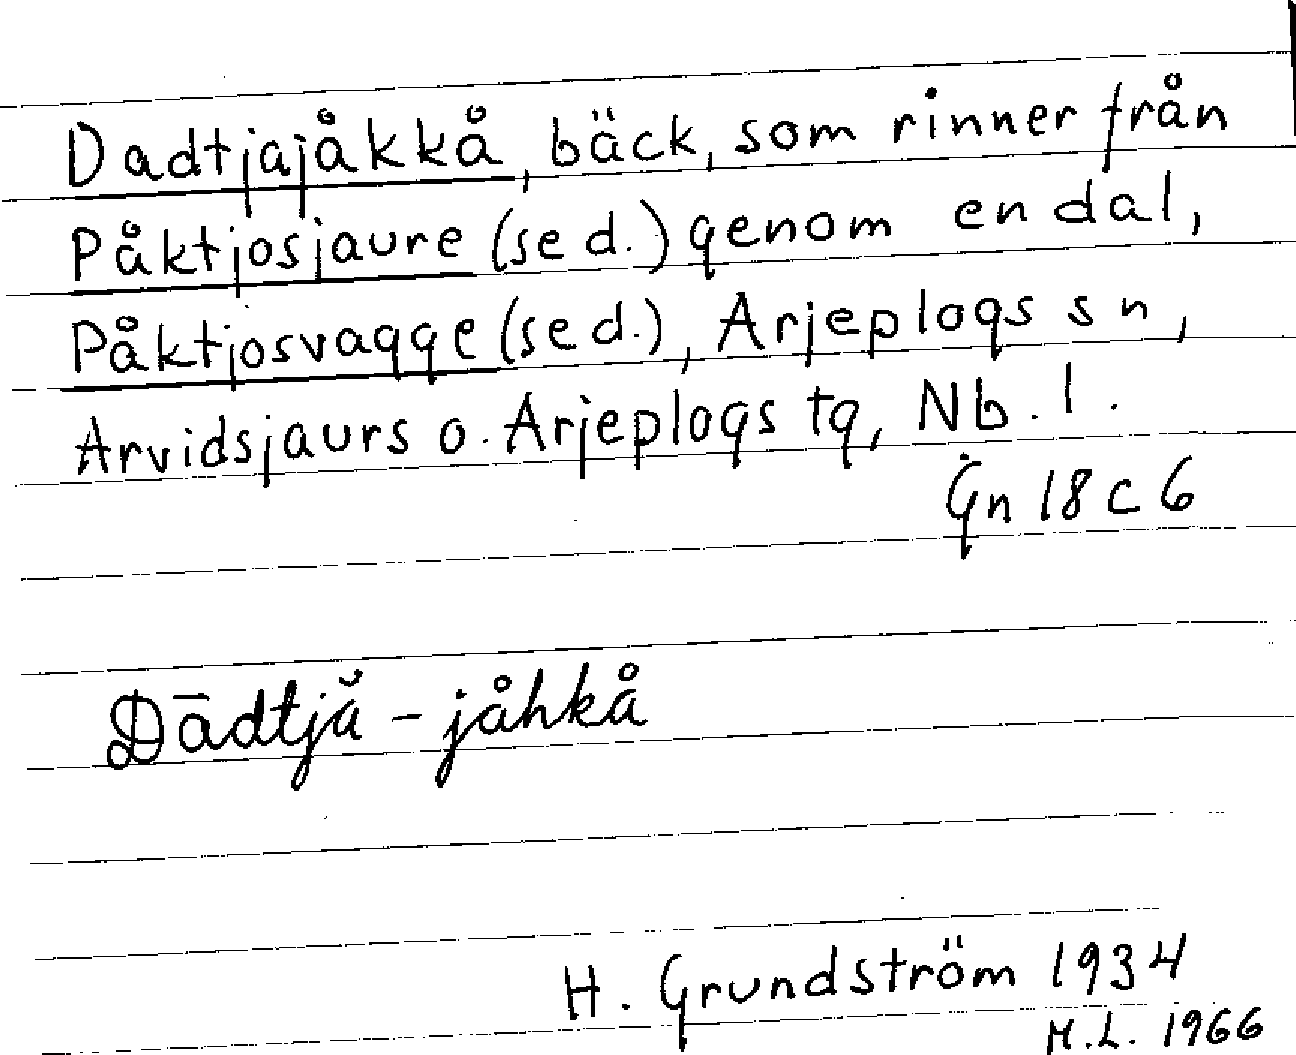 Dadtjajåkkå, bäck, som rinner från
Påktjosjaure (se d.) genom en dal,
Påktjosvagge (se d.), Arjeplogs sn,
Arvidsjaurs o. Arjeplogs tg, Nb. l.
Gn 18 c 6
Dādtjă - jåhkå
H. Grundström 1934
M.L. 1966